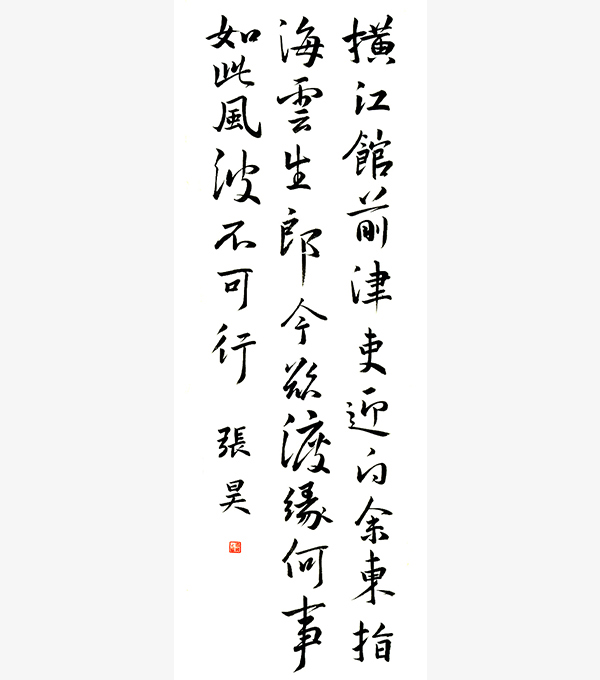 橫江館前津吏迎向余東指
海雲生郎今欲渡緣何事
如此風波不可行 張昊